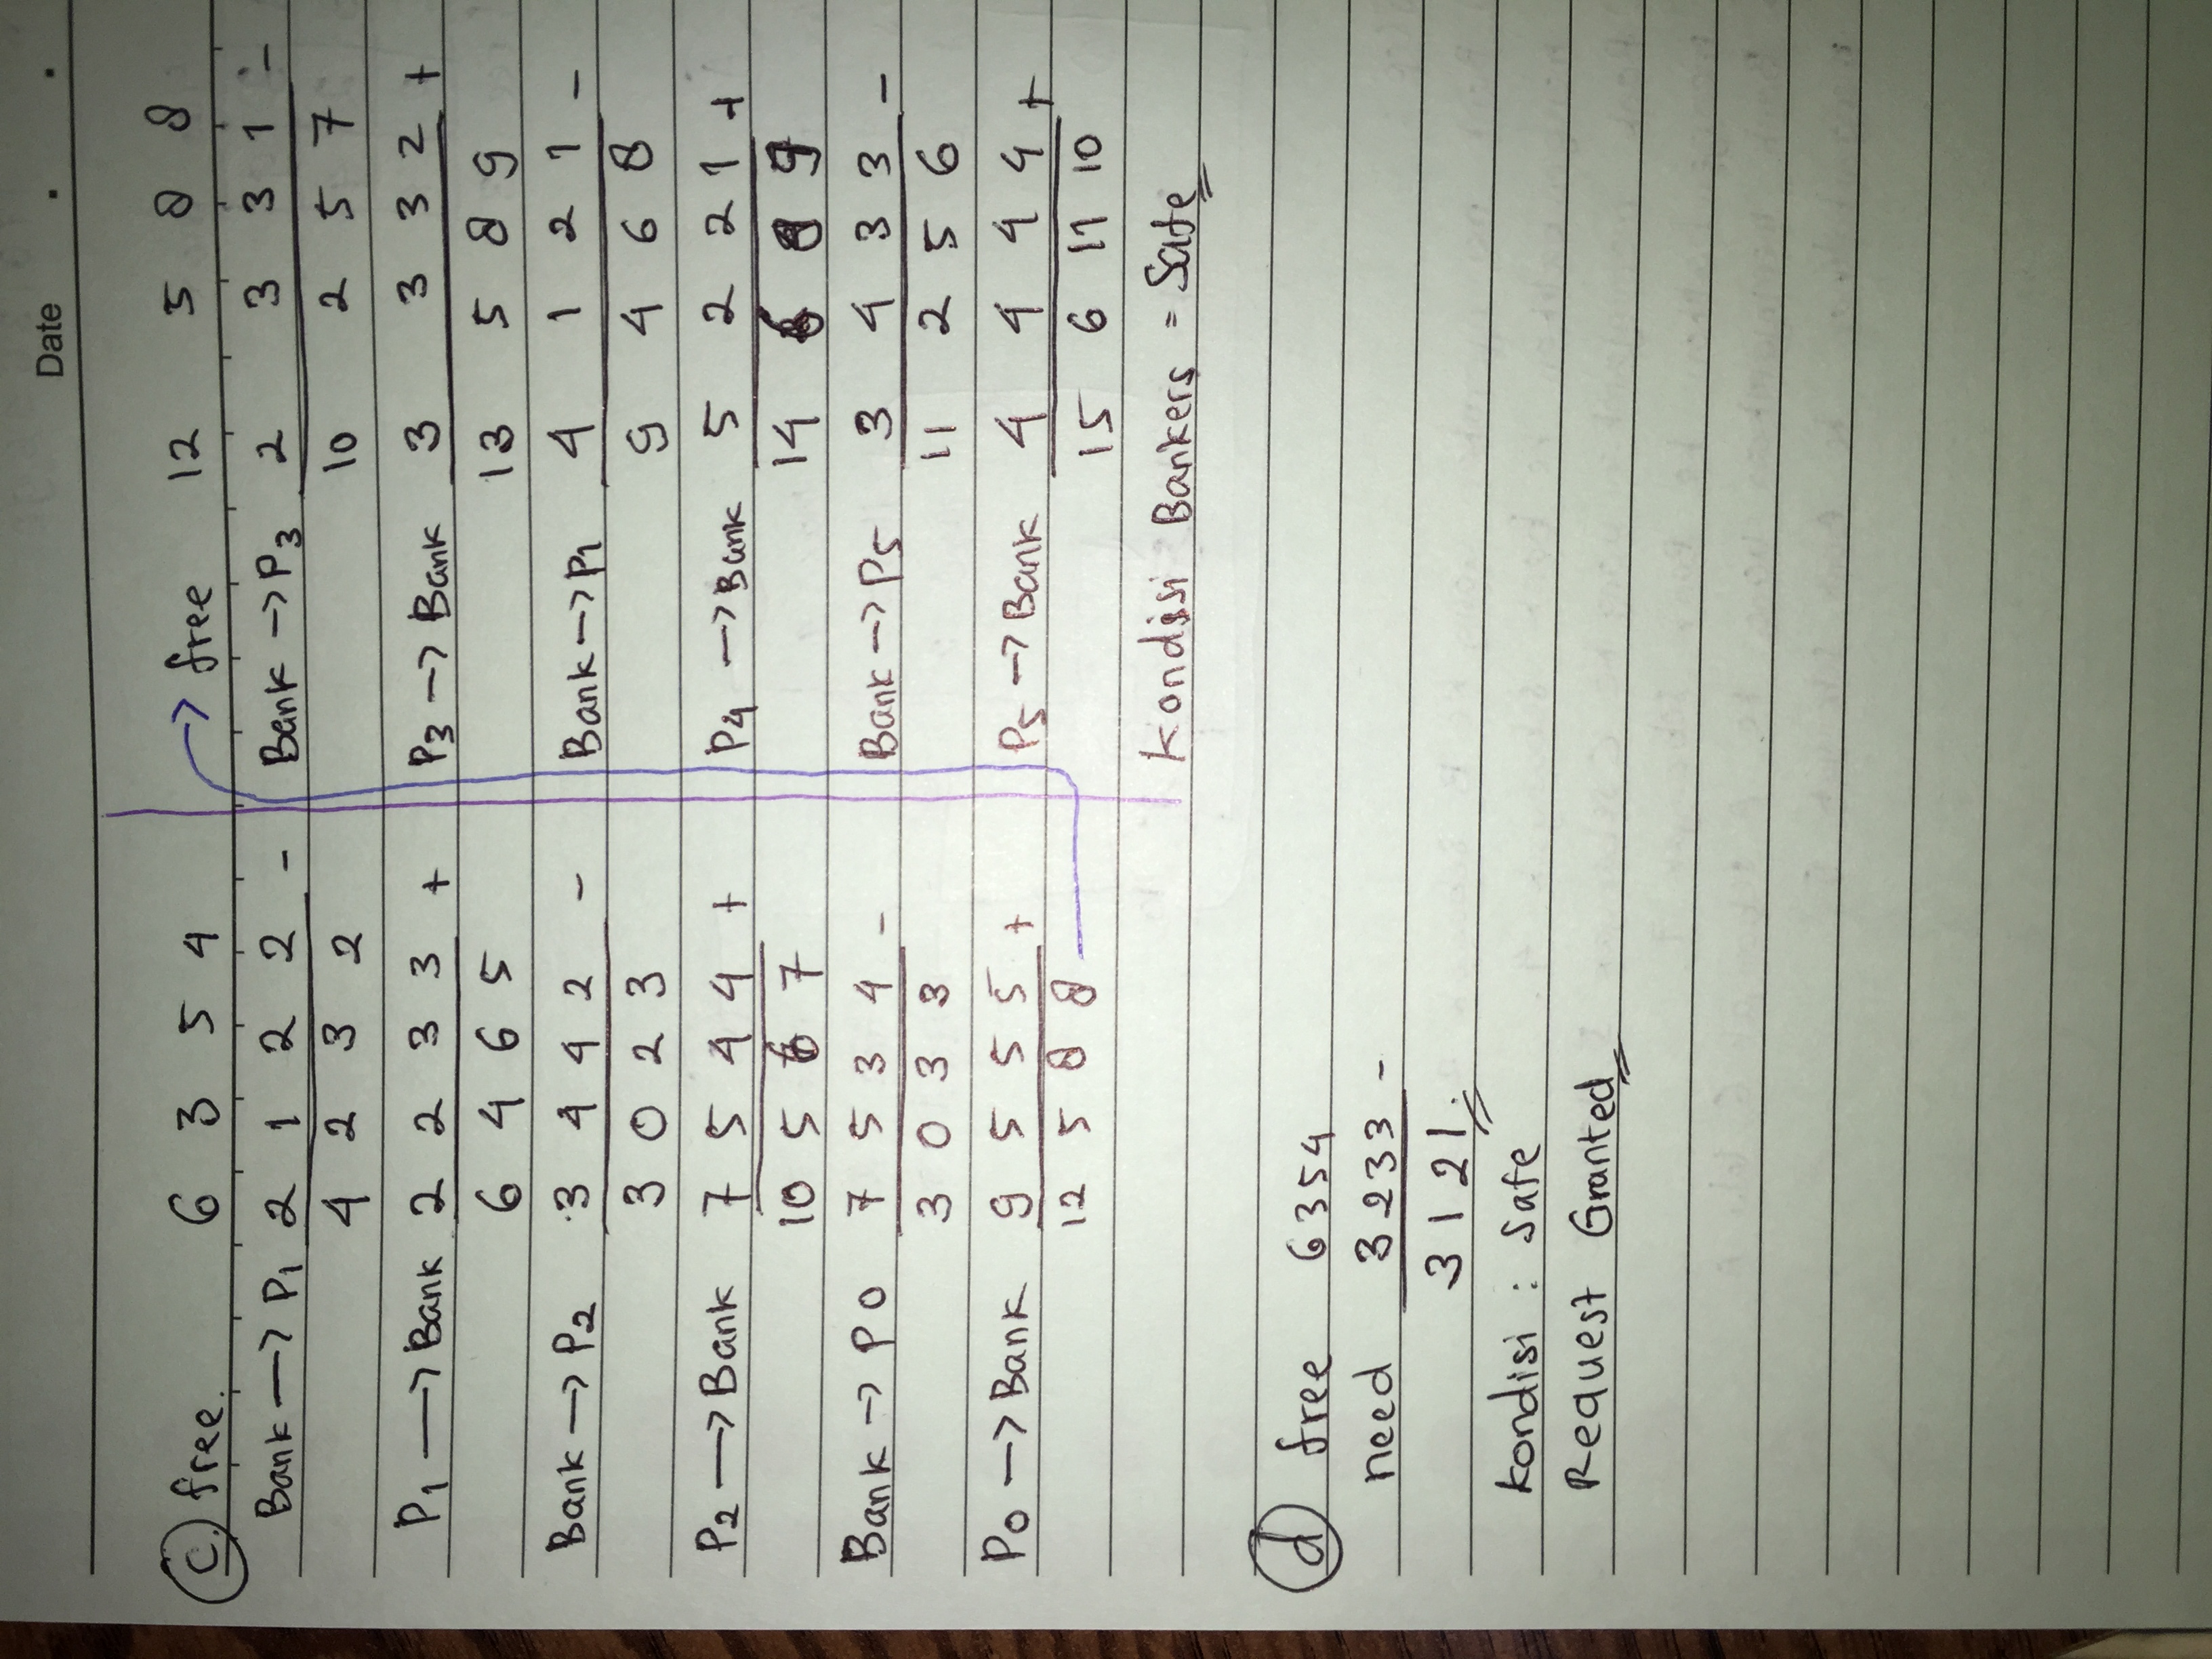 Date . .
c. free. 6 3 5 4
Bank → P1 2 1 2 2 -
4 2 3 2
P1 → Bank 2 2 3 3 +
6 4 6 5
Bank → P2 3 4 4 2 -
3 0 2 3
P2 → Bank 7 5 4 4 +
10 5 6 7
Bank → P0 7 5 3 4 -
3 0 3 3
P0 → Bank 9 5 5 5 +
12 5 8 8
→ free 12 5 8 8
Bank → P3 2 3 3 1 -
10 2 5 7
P3 → Bank 3 3 3 2 +
13 5 8 9
Bank → P1 4 1 2 1 -
9 4 6 8
P4 → Bank 5 2 2 1 +
14 6 8 9
Bank → P5 3 4 3 3 -
11 2 5 6
P5 → Bank 4 4 4 4 +
15 6 11 10
Kondisi Bankers = Safe
d free 6354
need 3233 -
3121.
Kondisi : Safe
Request Granted